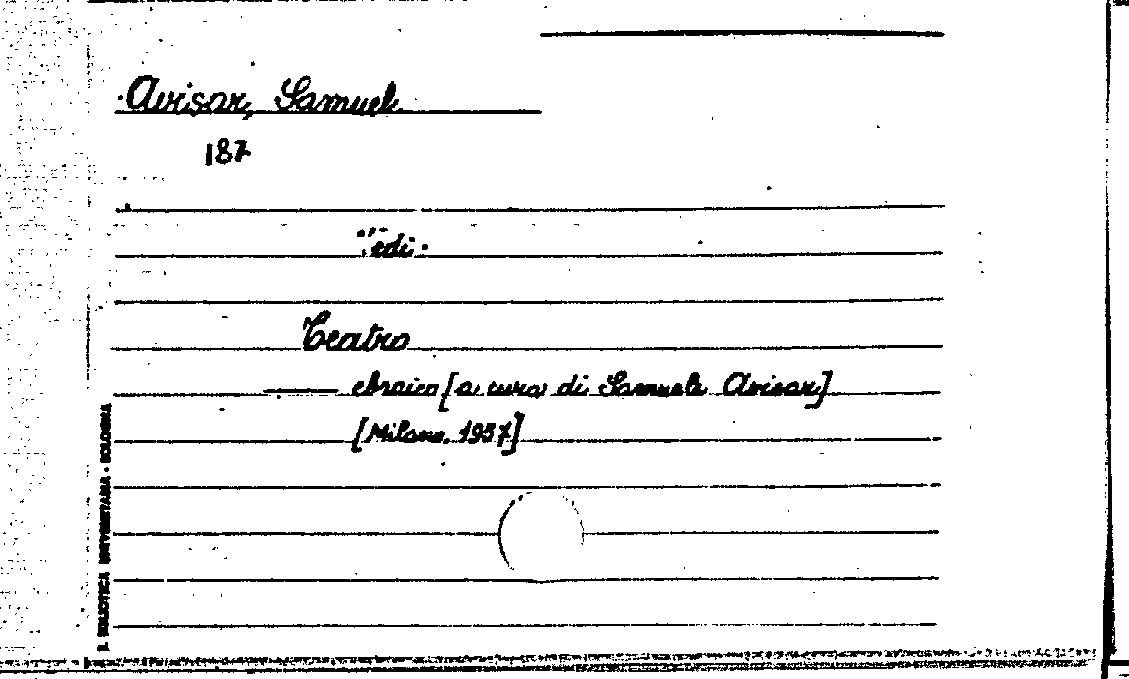 Avisar, Samuel
187
Vedi:
Teatro
— ebraico [a cura di Samuele Avisar]
[Milano, 1957]
BIBLIOTECA UNIVERSITARIA - BOLOGNA